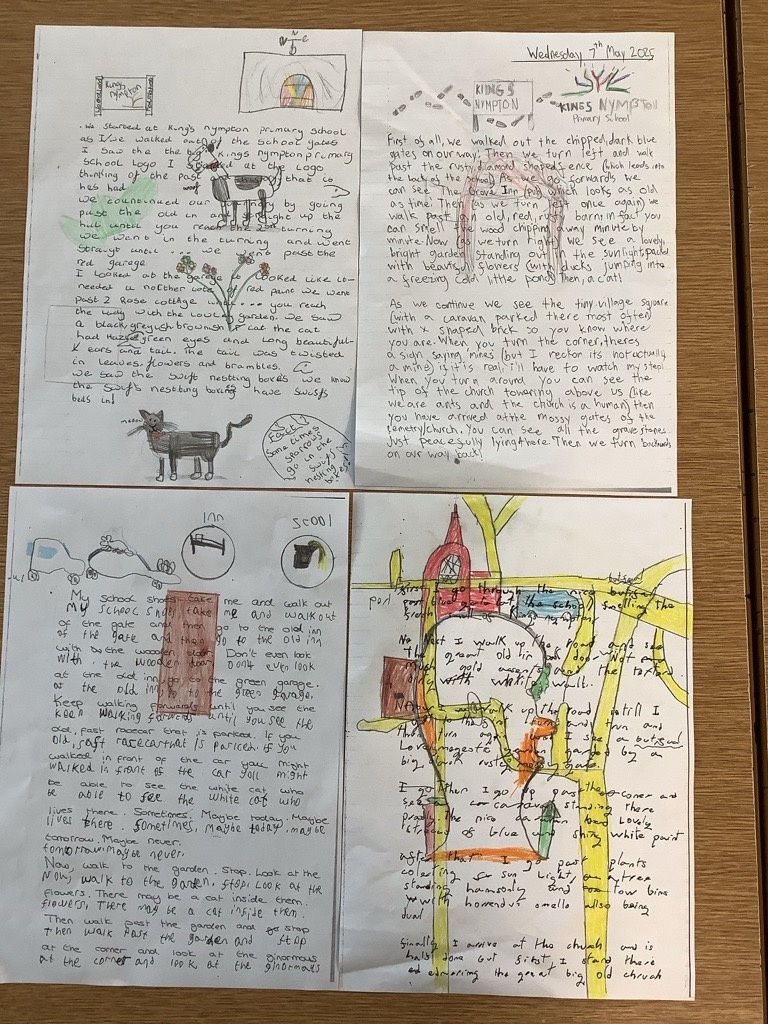 N
E
Kings
Nympton
We started at King's nympton primary school
as I/we walked out of the school gates
I saw the the big kings nympton primary
School logo I at the logo
thinking of the past that is
hes had
we countinued our by going
past the old inn and up the
hill until you reach the 2nd turning
we went in the turning and went
strayt until ... we past the
red garage.
I looked at the garage it looked like it
needed a nother cote red paint we went
past 2 Rose cottage ... you reach
the lady with the lovely garden. we saw
a black, greyish brownish cat the cat
had green eyes and long beautiful
ears and tail. The tail was twisted
in leaves, flowers and brambles.
we saw the Swift nestting boxes we know
the Swifs nestting boxing have swifs
beds in!
meow
Fact!
Some times
sparrows
go in the
swifs
nesting
boxes!
Wednesday 7th May 2025
KINGS
NYMPTON
KINGS NYMPTON
Primary School
First of all, we walked out the chipped, dark blue
gates on our way. Then we turn left and walk
past the rusty diamond shaped fence (which leads into
the back of the school) As we go forwards we
can see The Grove Inn (pub) which looks as old
as time! Then (as we turn left once again) we
walk past an old, red, rusty barn: in fact you
can smell the wood chipping away minute by
minute. Now (as we turn right) we see a lovely,
bright garden standing out in the sunlight, packed
with beautiful flowers (with ducks jumping into
a freezing cold little pond) Then, a cat!
As we continue we see the tiny village square
(with a caravan parked there most often)
with x shaped brick so you know where
you are. When you turn the corner, theres
a sign saying mines (but I reckon its not actually
a mine) if it is real, i'll have to watch my step!
When you turn around you can see the
tip of the church towering above us (like
we are ants and the church is a human) then
you have arrived at the mossy gates of the
cemetry/church. You can see all the grave stones
Just peacefully lying there. Then we turn backwards
on our way back!
Inn
scool
My school shoes take me and walk out
My school shoes take me and walk out
of the gate and then go to the old inn
of the gate and then go to the old inn
with the wooden door. Don't even look
with the wooden door Dont even look
at the old inn go to the green garage.
at the old inn go to the green garage.
Keep walking forwards until you see the
keep walking forwards until you see the
old, fast racecar that is parked. If you
old, fast racecar that is parked. if you
walked in front of the car you might
walked in front of the car you might
be able to see the white cat who
be able to see the white cat who
lives there. Sometimes. Maybe today. Maybe
lives there. Sometimes, maybe today. maybe
tomorrow. Maybe never.
tomorrow. maybe never.
Now, walk to the garden. Stop. Look at the
Now, walk to the garden, stop. Look at the
flowers. There may be a cat inside them.
flowers, There may be a cat inside them.
Then walk past the garden and go stop
Then walk past the garden and stop
at the corner and look at the ginormous
at the corner and look at the ginormous
First I go through the nice
blue gate the school smelling the
fresh smell of Kings nympton.
Next I walk up the road and see
The great old inn
gold
only with white walls.
walk up the road still I
turn and
turn again I see a
Lovely garden guarded by a
big rusty gate.
then I go up past the corner and
see caravan standing there
The nice caravan Lovely
of blue and shiny white paint
after that I go past plants
sun light, a tree
standing and tow bins
with smells also being
Finally I arrive at the church and is
half done but first I stand there
the great big old chruch